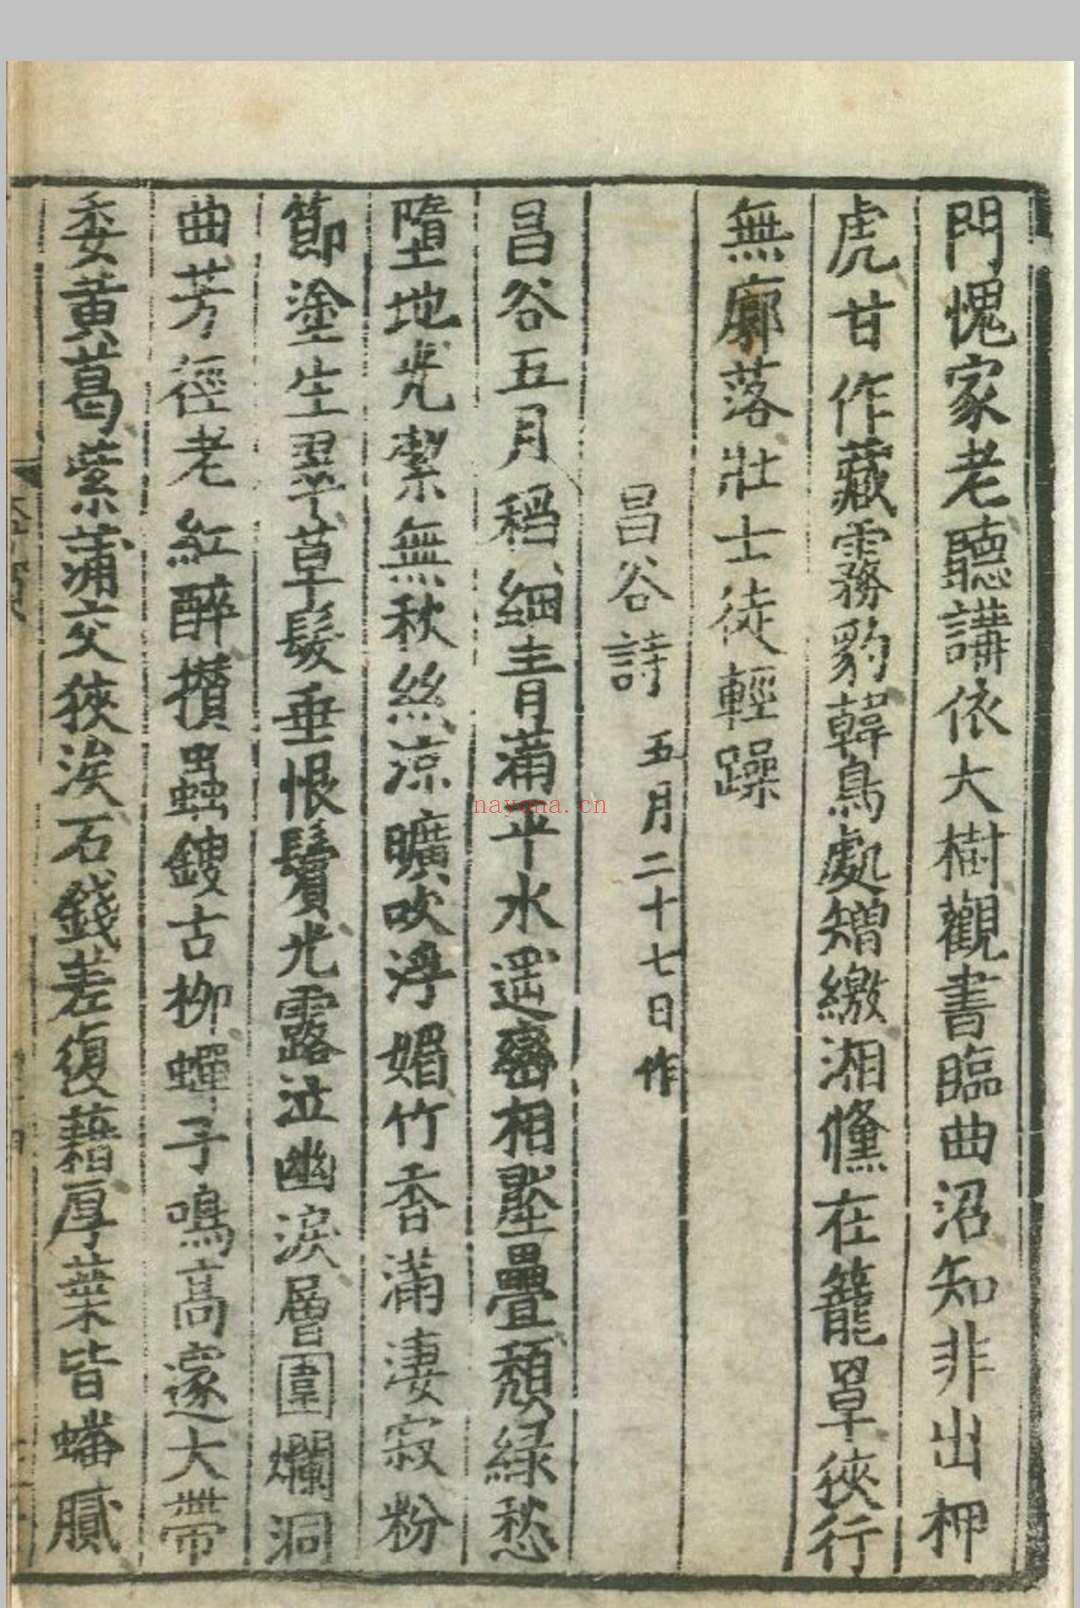 門愧家老聽講依大樹觀書臨曲沼知非出柙
虎甘作藏霧豹韓鳥處矰繳湘鯈在籠罩狹行
無廓落壯士徒輕躁
昌谷詩 五月二十七日作
昌谷五月稻細青滿平水遥巒相壓疊頹綠愁
墮地光絜無秋絲凉曠吹浮媚竹香滿淒寂粉
節塗生翠草髮垂恨鬢光露泣幽淚層圍爛洞
曲芳徑老紅醉攢蟲鎪古柳蟬子鳴高邃大帶
委黃葛紫蒲交狹涘石錢差復藉厚葉皆蟠膩
nayona.cn